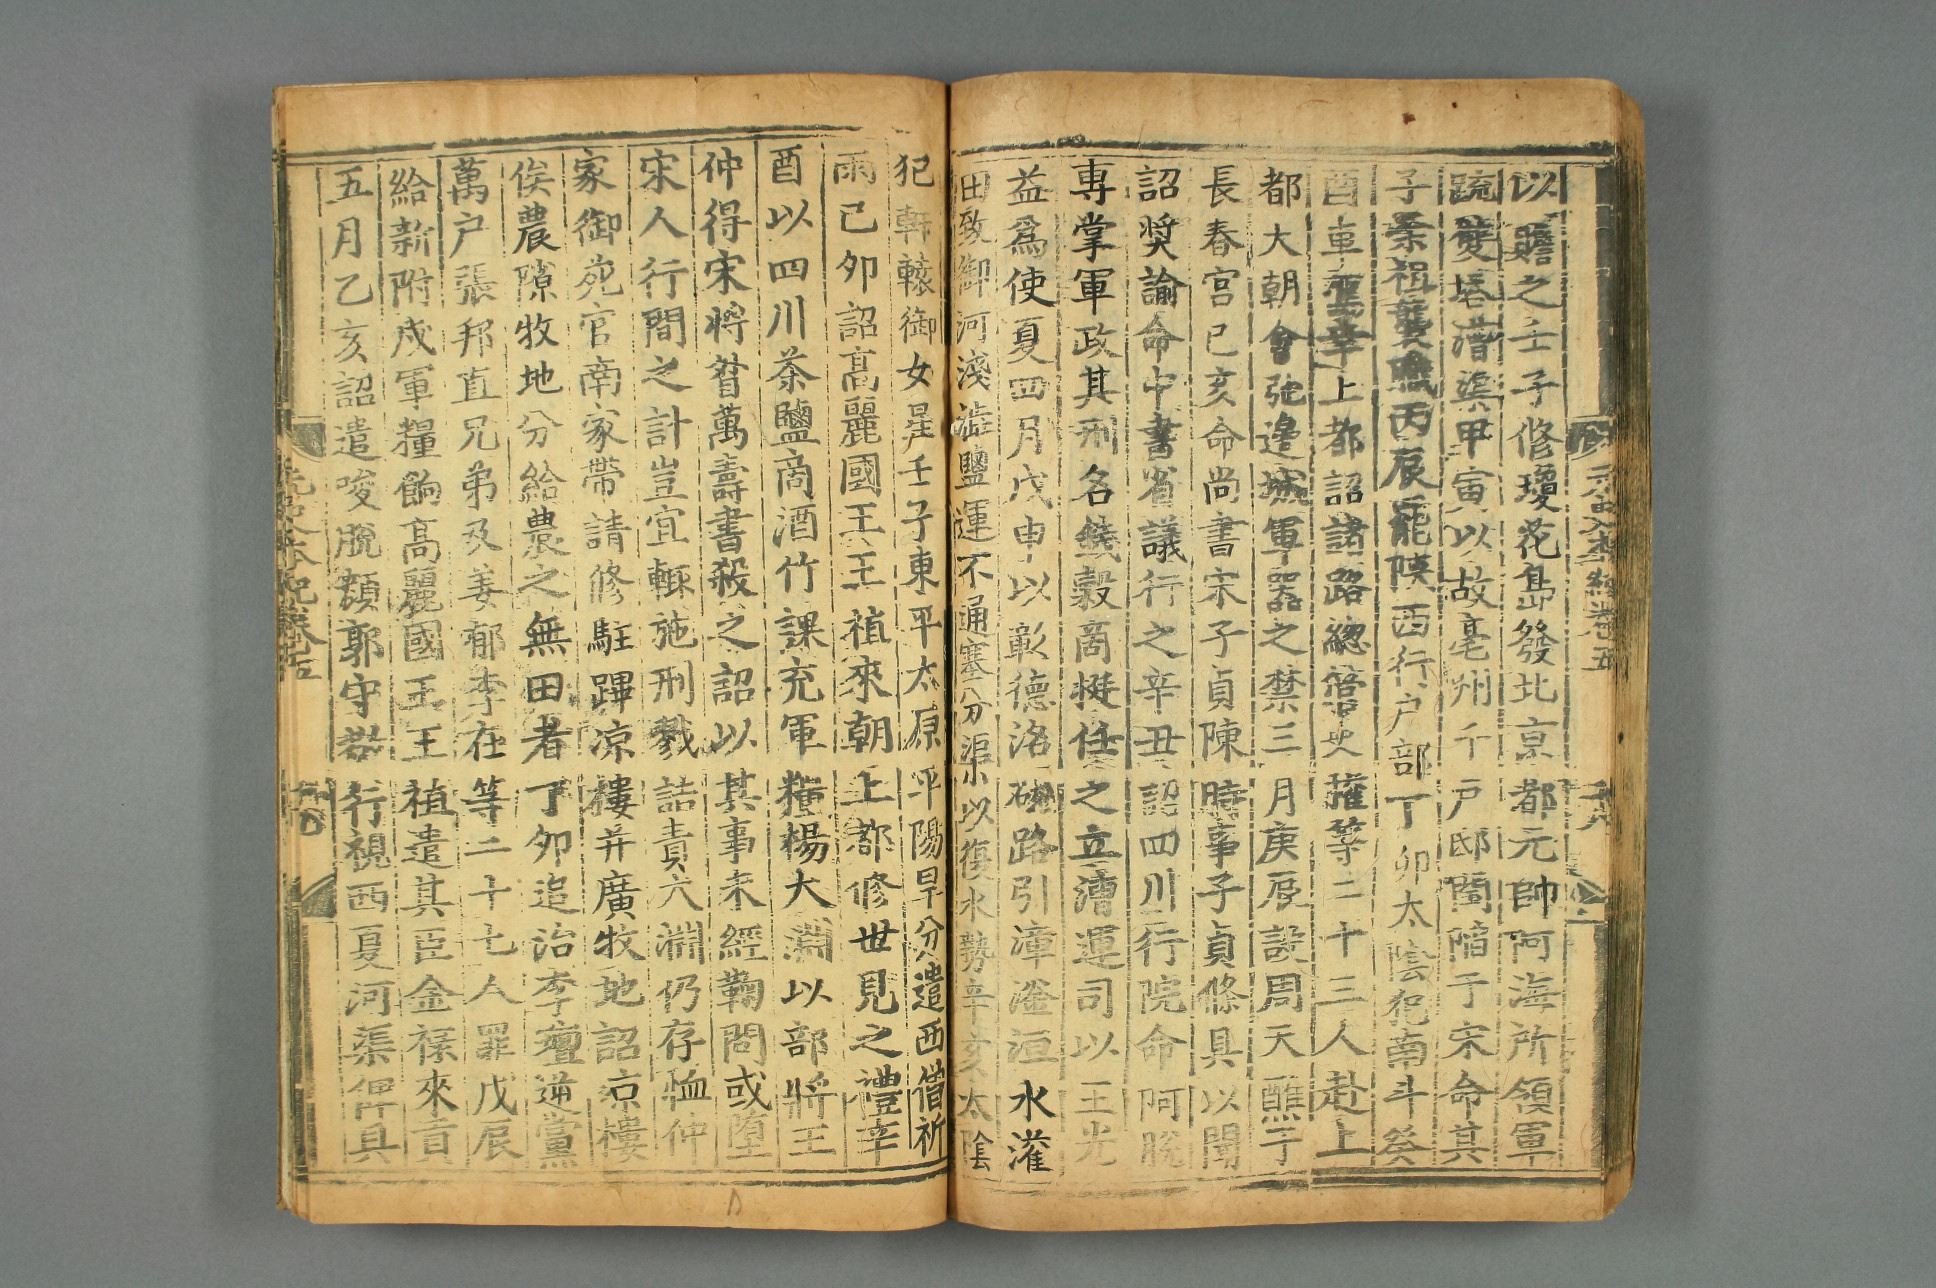 以贍之壬子修瓊花島發北京都元帥阿海所領軍
疏雙塔漕渠甲寅以故亳州千戶邸閏陷于宋命其
子榮祖襲職丙辰罷陝西行户部丁卯太陰犯南斗癸
酉車駕幸上都詔諸路緫管史權等二十三人赴上
都大朝會弛邊城軍器之禁三月庚辰設周天醮于
長春宮己亥命尚書宋子貞陳時事子貞條具以聞
詔奬諭命中書省議行之辛丑詔四川行院命阿脫
專掌軍政其刑名錢糓商挺任之立漕運司以王光
益爲使夏四月戊申以彰德洺磁路引漳滏洹水灌
田致御河淺澁鹽運不通塞分渠以復水勢辛亥太陰
犯軒轅御女星壬子東平太原平陽旱分遣西僧祈
雨己卯詔髙麗國王王植來朝上都修世見之禮辛
酉以四川茶鹽商酒竹課充軍糧楊大淵以部將王
仲得宋將昝萬壽書殺之詔以其事未經鞠問或墮
宋人行間之計豈宜輒施刑戮詰責大淵仍存䘏仲
家御苑官南家帶請修駐蹕凉樓并廣牧地詔凉樓
俟農隙牧地分給農之無田者丁卯追治李璮逆黨
萬户張邦直兄弟及姜郁李在等二十七人罪戊辰
給新附戍軍糧餉髙麗國王王植遣其臣金祿來貢
五月乙亥詔遣唆脫顏郭守敬行視西夏河渠俾具